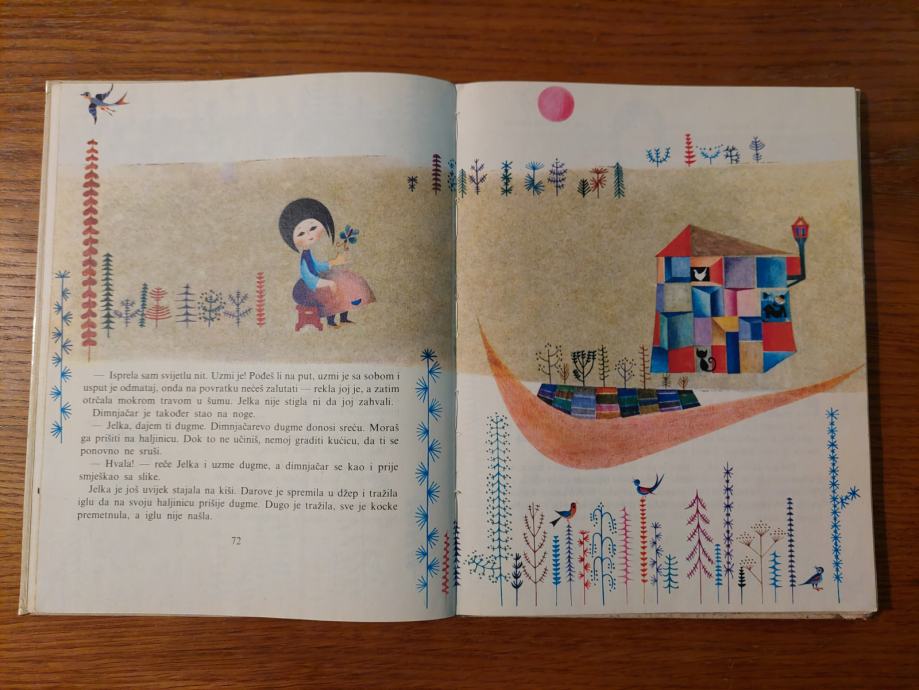 — Isprela sam svijetlu nit. Uzmi je! Pođeš li na put, uzmi je sa sobom i
usput je odmataj, onda na povratku nećeš zalutati — rekla joj je, a zatim
otrčala mokrom travom u šumu. Jelka nije stigla ni da joj zahvali.
Dimnjačar je također stao na noge.
— Jelka, dajem ti dugme. Dimnjačarevo dugme donosi sreću. Moraš
ga prišiti na haljinicu. Dok to ne učiniš, nemoj graditi kućicu, da ti se
ponovno ne sruši.
— Hvala! — reče Jelka i uzme dugme, a dimnjačar se kao i prije
smješkao sa slike.
Jelka je još uvijek stajala na kiši. Darove je spremila u džep i tražila
iglu da na svoju haljinicu prišije dugme. Dugo je tražila, sve je kocke
premetnula, a iglu nije našla.
72